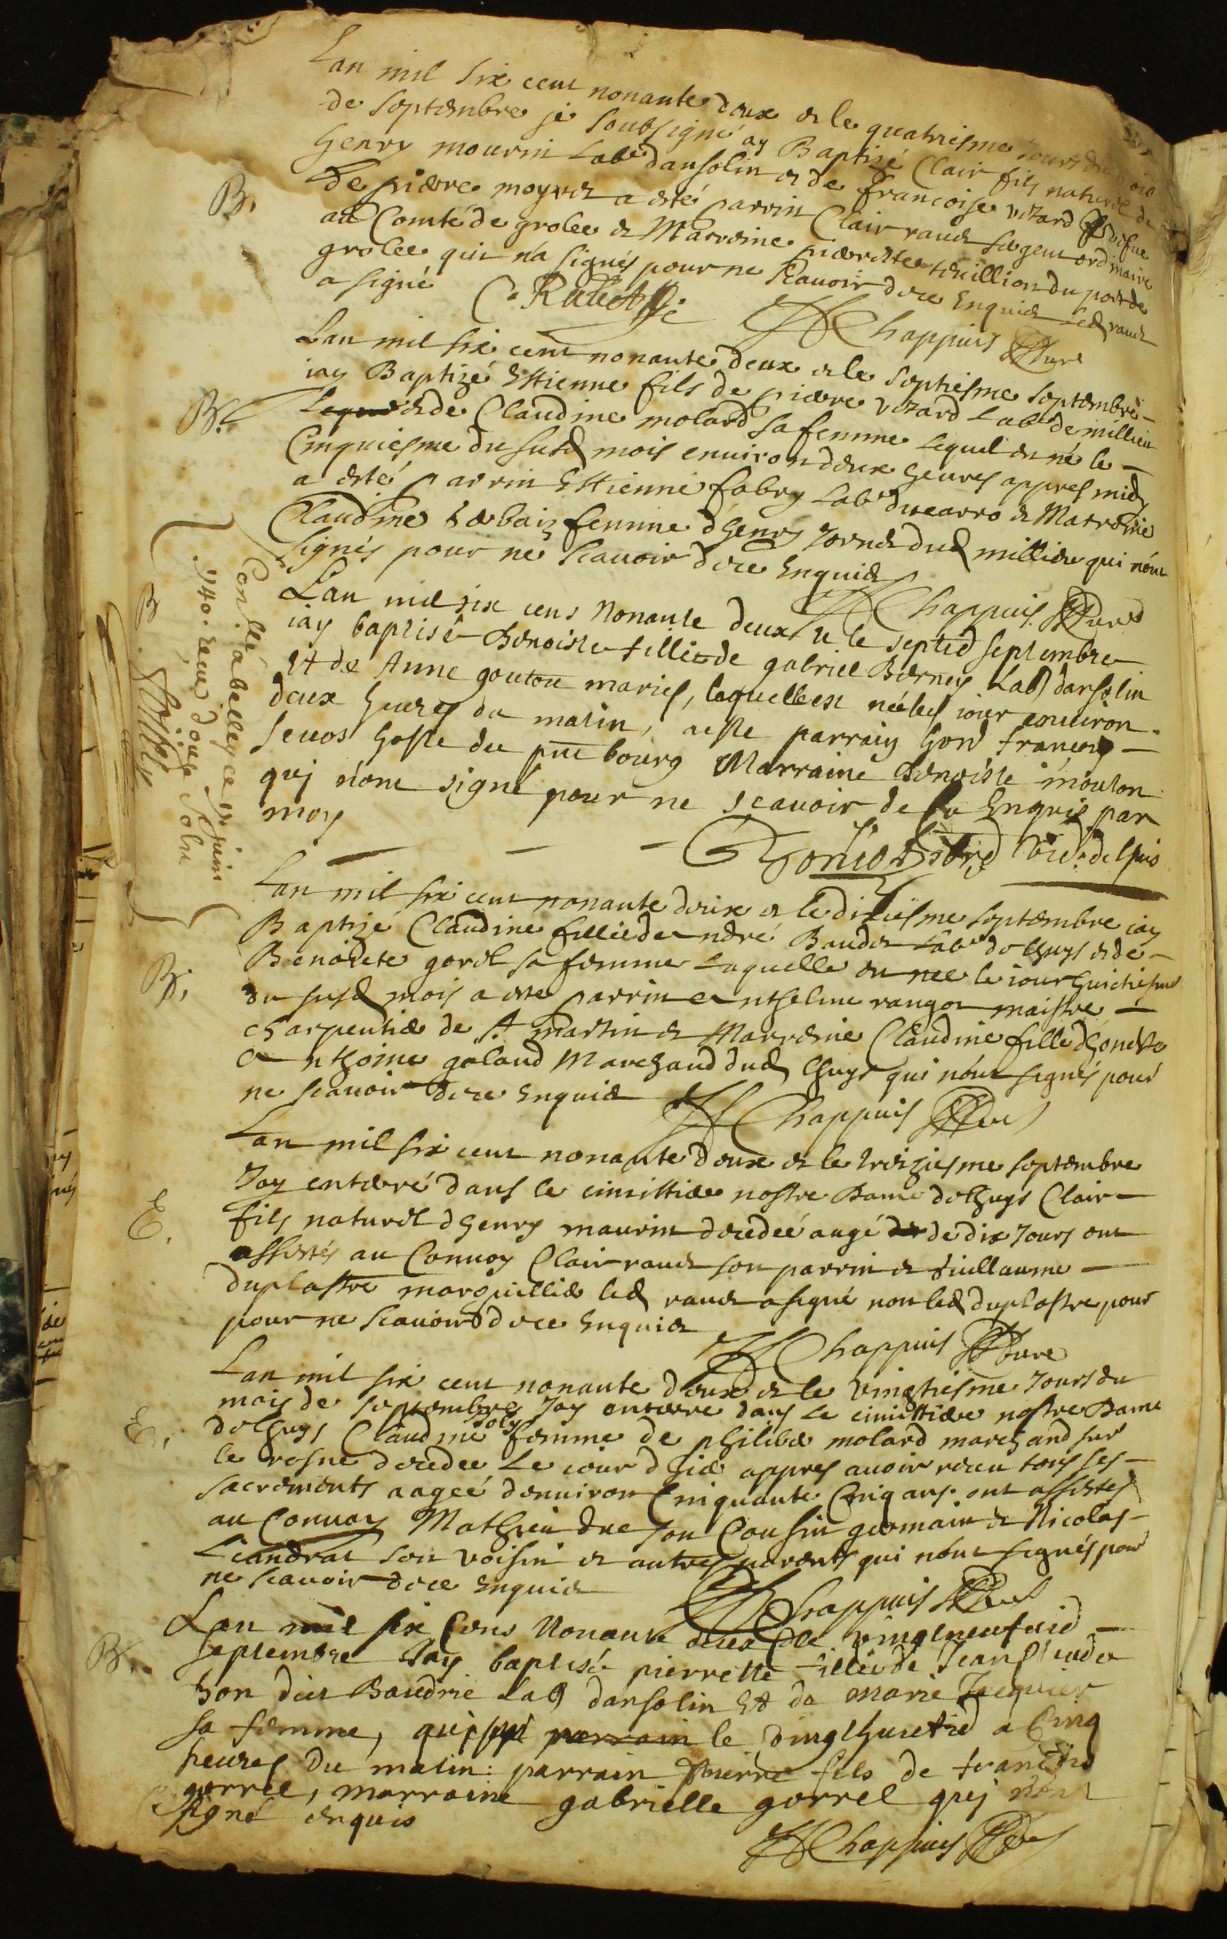 Lan mil six cent nonante deux et le quatriesme jour du mois
de septembre je soubsigné ay Baptizé Clair fils naturel de
Henry mourin Labr dansolin et de francoise vezard
de pierre moynet a esté parrin Clair raud sergent ordinaire
au Comté de grolee et Marreine pierrette du port de
grolee qui na signés pour ne scavoir de ce Enquis led raud
a signé
Chappuis Cure
B.
Lan mil six cent nonante deux et le septiesme septembre
iay Baptizé Estienne fils de pierre vezard Labr de millieu
et de Claudine molard sa femme lequel est né le
Cinquiesme du susd mois environ deux heures appres midy
a esté parrin Estienne fabry Labr et Marreine
Claudine femme dhenry dud millieu qui nont
signés pour ne scavoir de ce Enquis
Chappuis Cure
B.
Lan mil six cens Nonante deux & le septie septembre
iay baptisé Benoiste fillie de gabriel Berney Labr dansolin
Et de Anne gouton maries, laquelle est née led iour environ
deux heures du matin, a esté parrain hond francois
hoste du pnt bourg Marraine Benoiste mouton
qui nont signé pour ne scavoir de ce Enquis par
moy
B
Con.lé a belley ce juin
1740. receu douze sols
Lan mil six cent nonante deux et le dixiesme septembre iay
Baptizé Claudine fillie de andré Baudet Labr de lhuys et de
Benoiste gorel sa femme Laquelle est nee le iour huictiesme
du susd mois a esté parrin anthelme rangot maistre
charpentier de st martin et Marreine Claudine fille dhoneste
anthoine galand Marchand dud lhuys qui nont signés pour
ne scavoir de ce Enquis
Chappuis Cure
B.
Lan mil six cent nonante deux et le treiziesme septembre
Jay enterré dans le cimittiere nostre Dame de lhuys Clair
fils naturel dhenry maurin decedeé augé de dix jours ont
assistés au Convoy Clair raud son parrin et Guillaume
duplastre marguillier led raud a signé non led duplastre pour
pour ne scavoir de ce Enquis
Chappuis Cure
E.
Lan mil six cent nonante deux et le vingtiesme Jour du
mois de septembre Jay enterre dans le cimittiere nostre Dame
de lhuys Claudine Joly femme de philibe molard marchand sur
le rosne decedee Le iour dhier appres avoir receu tous ses
sacrements aageé denviron Cinquante Cinq ans ont assistes
au Convoy Mathieu son Cousin germain et Nicolas
son voisin et autres parents qui nont signés pour
ne scavoir de ce Enquis
Chappuis Cure
E.
Lan mil six Cens Nonante deux & le vingtneufvie
septembre Jay baptisé pierrette fillie de Jean
hon dit Baudrie Labr dansolin Et de marie Jacquier
sa femme, parrain le vingthuictie a Cinq
heures du matin: parrain pierre fils de francois
gorrel, marraine gabrielle gorrel qui nont
signé enquis
Chappuis Cure
B.